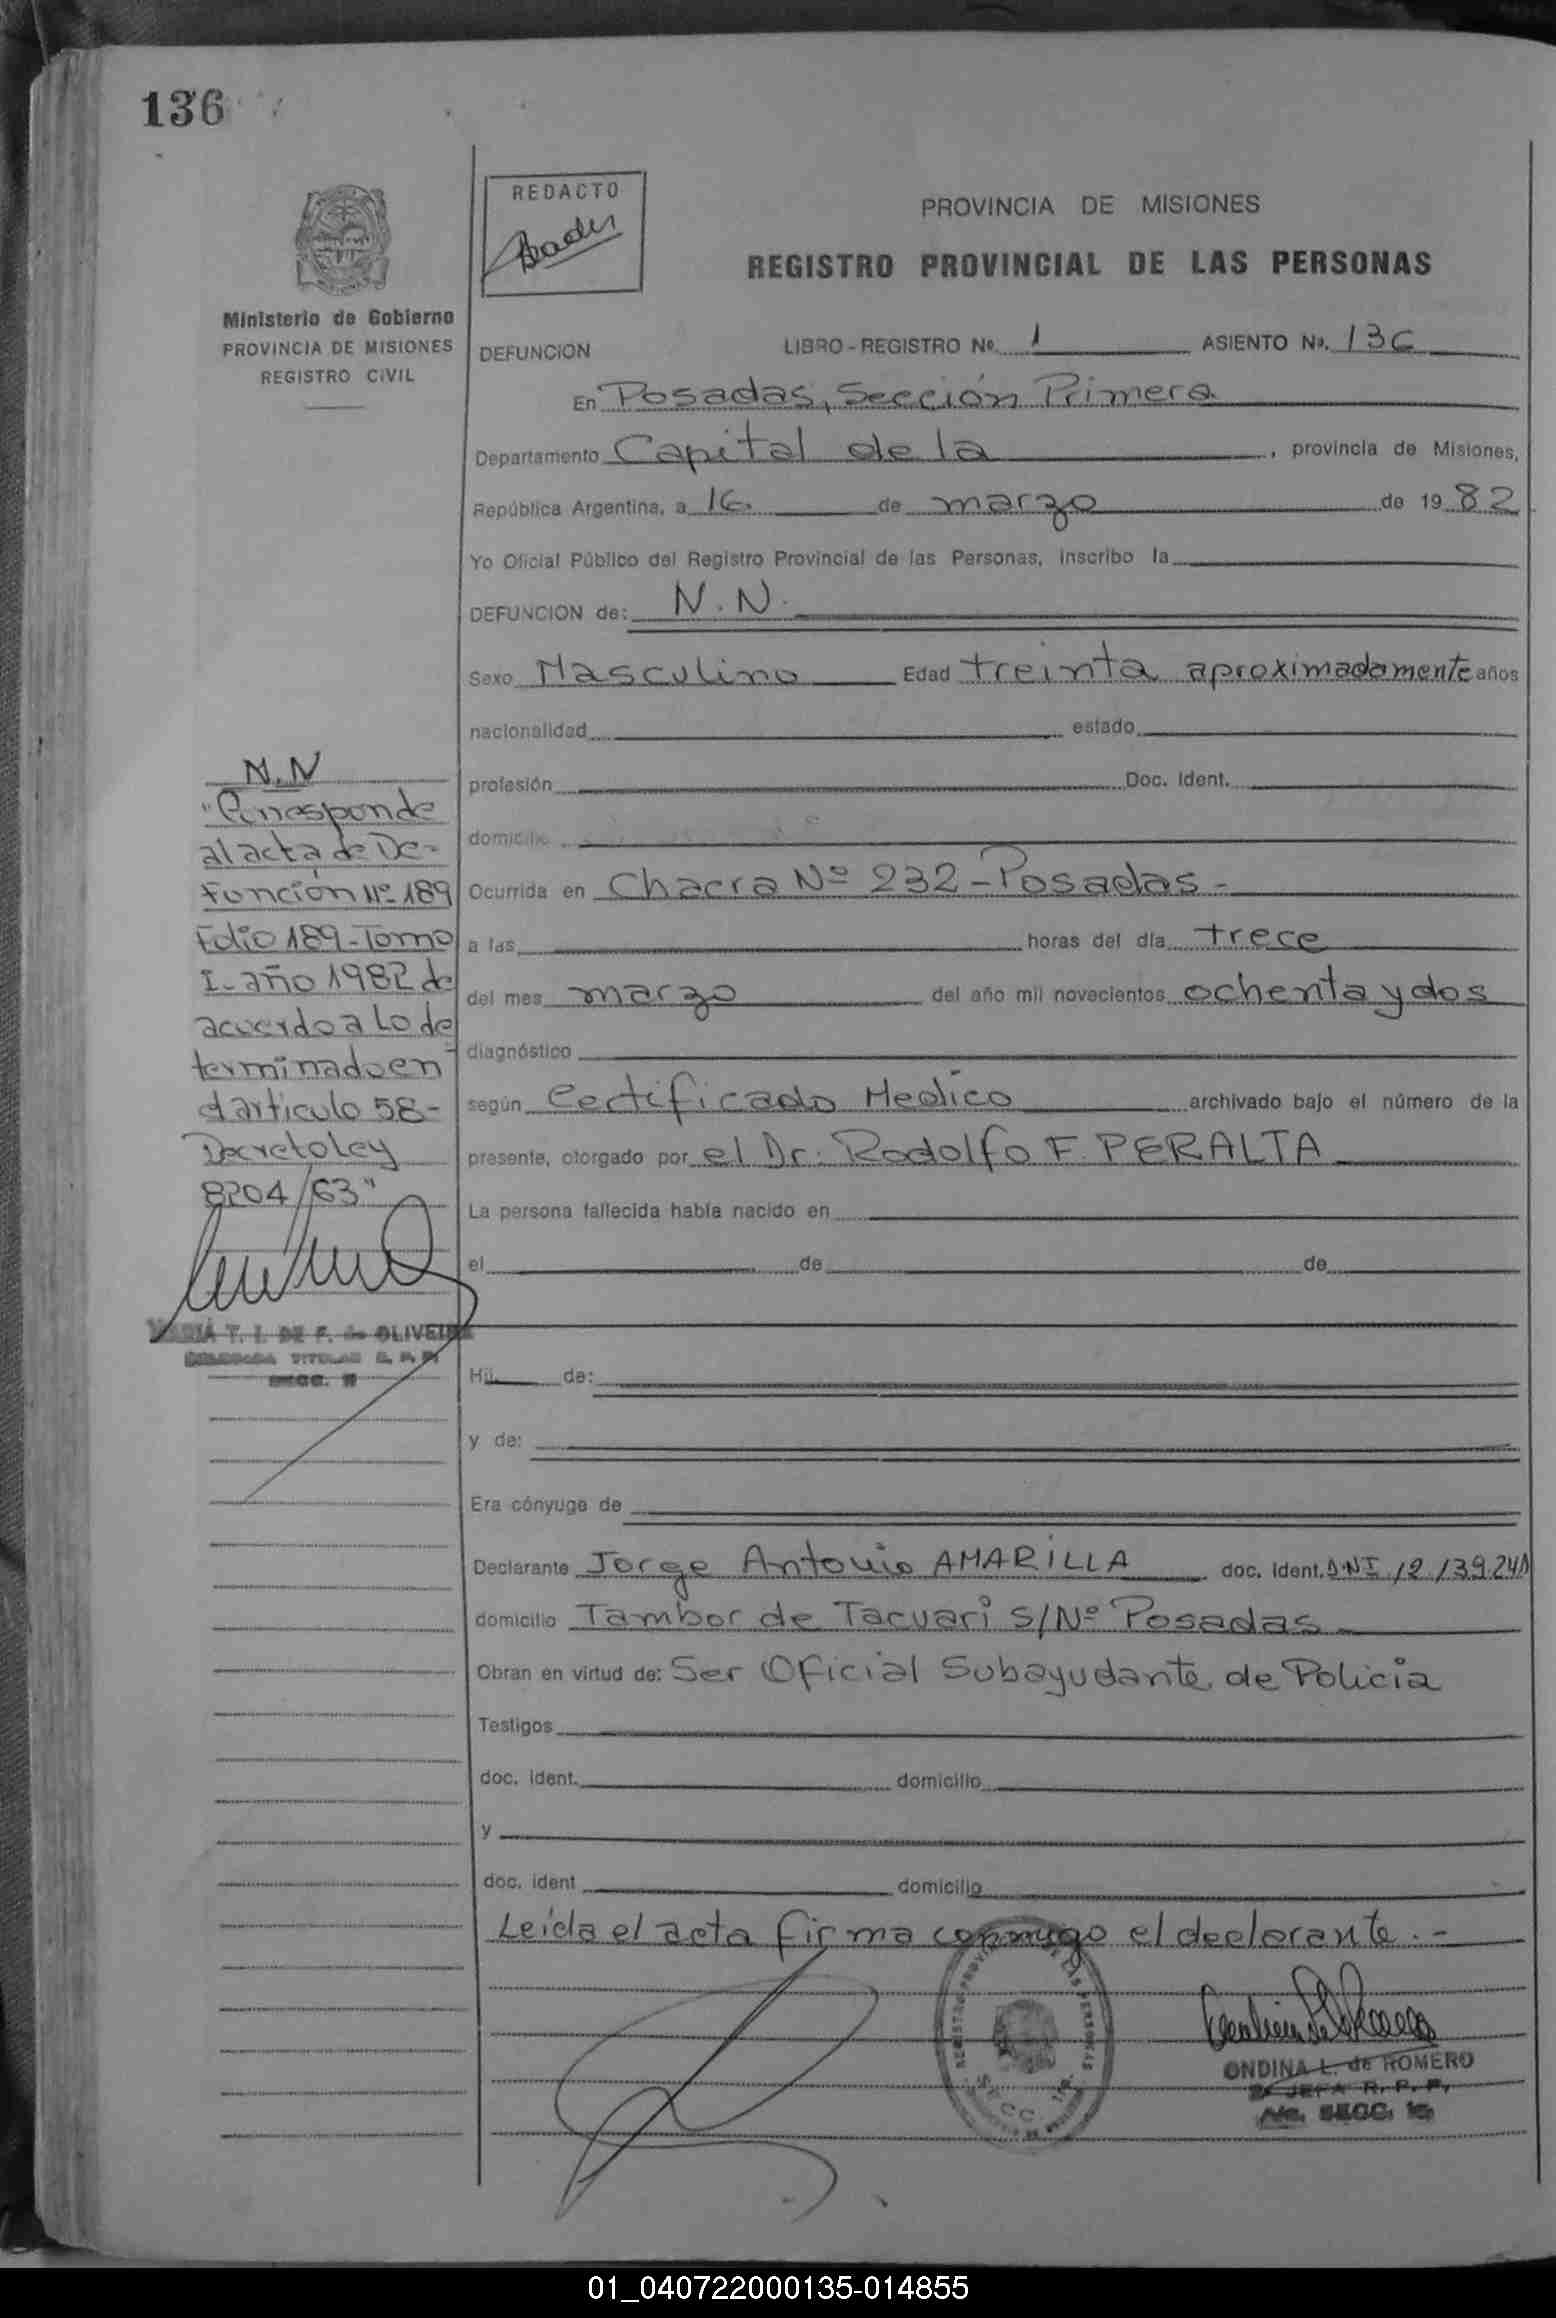 136
REDACTO
PROVINCIA DE MISIONES
REGISTRO PROVINCIAL DE LAS PERSONAS
Ministerio de Gobierno
PROVINCIA DE MISIONES
REGISTRO CIVIL
DEFUNCION LIBRO-REGISTRO Nº. 1 ASIENTO Nº. 136
En Posadas, Sección Primera
Departamento Capital de la, provincia de Misiones,
República Argentina, a 16 de marzo de 1982
Yo Oficial Público del Registro Provincial de las Personas, inscribo la
DEFUNCION de: N.N.
Sexo Masculino Edad treinta aproximadamente años
nacionalidad estado
profesión Doc. Ident.
domicilio
Ocurrida en Chacra Nº 232-Posadas-
a las horas del día trece
del mes marzo del año mil novecientos ochenta y dos
diagnóstico
según Certificado Medico archivado bajo el número de la
presente, otorgado por el Dr. Rodolfo F. PERALTA
La persona fallecida había nacido en
el de de
Hij de:
y de:
Era cónyuge de
Declarante Jorge Antonio AMARILLA doc. Ident. DNI
domicilio Tambor de Tacuari S/Nº Posadas
Obran en virtud de: Ser Oficial Subayudante de Policia
Testigos
doc. ident. domicilio
y
doc. ident domicilio
Leída el acta firma conmigo el declarante.-
N.N
"Corresponde
al acta de De-
función Nº 189
Folio 189-Tomo
I-año 1982 de
acuerdo a lo de
terminado en
el articulo 58-
Decreto ley
8204/63"
MARIA T. I. DE F. de OLIVEIRA
DELEGADA TITULAR R. P. P.
SECC.
REGISTRO PROVINCIAL DE LAS PERSONAS
SECC. 1ra.
ONDINA L. de ROMERO
JEFA R. P. P.
A/c. SECC. 1a.
01_040722000135-014855